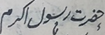 حضرت رسول اکرم